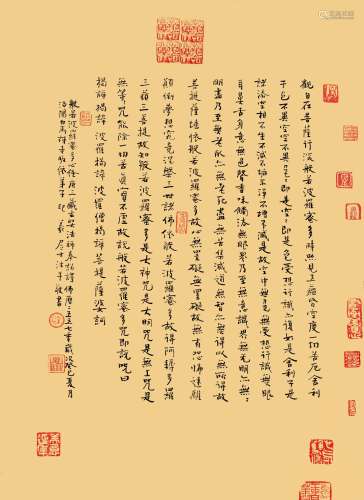 觀自在菩薩行深般若波羅蜜多時照見五蘊皆空度一切苦厄舍利
子色不異空空不異色色即是空空即是色受想行識亦復如是舍利子是
諸法空相不生不滅不垢不淨不增不減是故空中無色無受想行識無眼
耳鼻舌身意無色聲香味觸法無眼界乃至無意識界無無明亦無無
明盡乃至無老死亦無老死盡無苦集滅道無智亦無得以無所得故
菩提薩埵依般若波羅蜜多故心無罣礙無罣礙故無有恐怖遠離
顛倒夢想究竟涅槃三世諸佛依般若波羅蜜多故得阿耨多羅
三藐三菩提故知般若波羅蜜多是大神咒是大明咒是無上咒是
無等等咒能除一切苦真實不虛故說般若波羅蜜多咒即說咒曰
揭諦揭諦 波羅揭諦 波羅僧揭諦 菩提薩婆訶
般若波羅蜜多心經 唐三藏玄奘法師奉詔譯 佛曆二五五七年歲次癸巳夏月
洛陽白馬禪寺皈依弟子 居士法 敬書